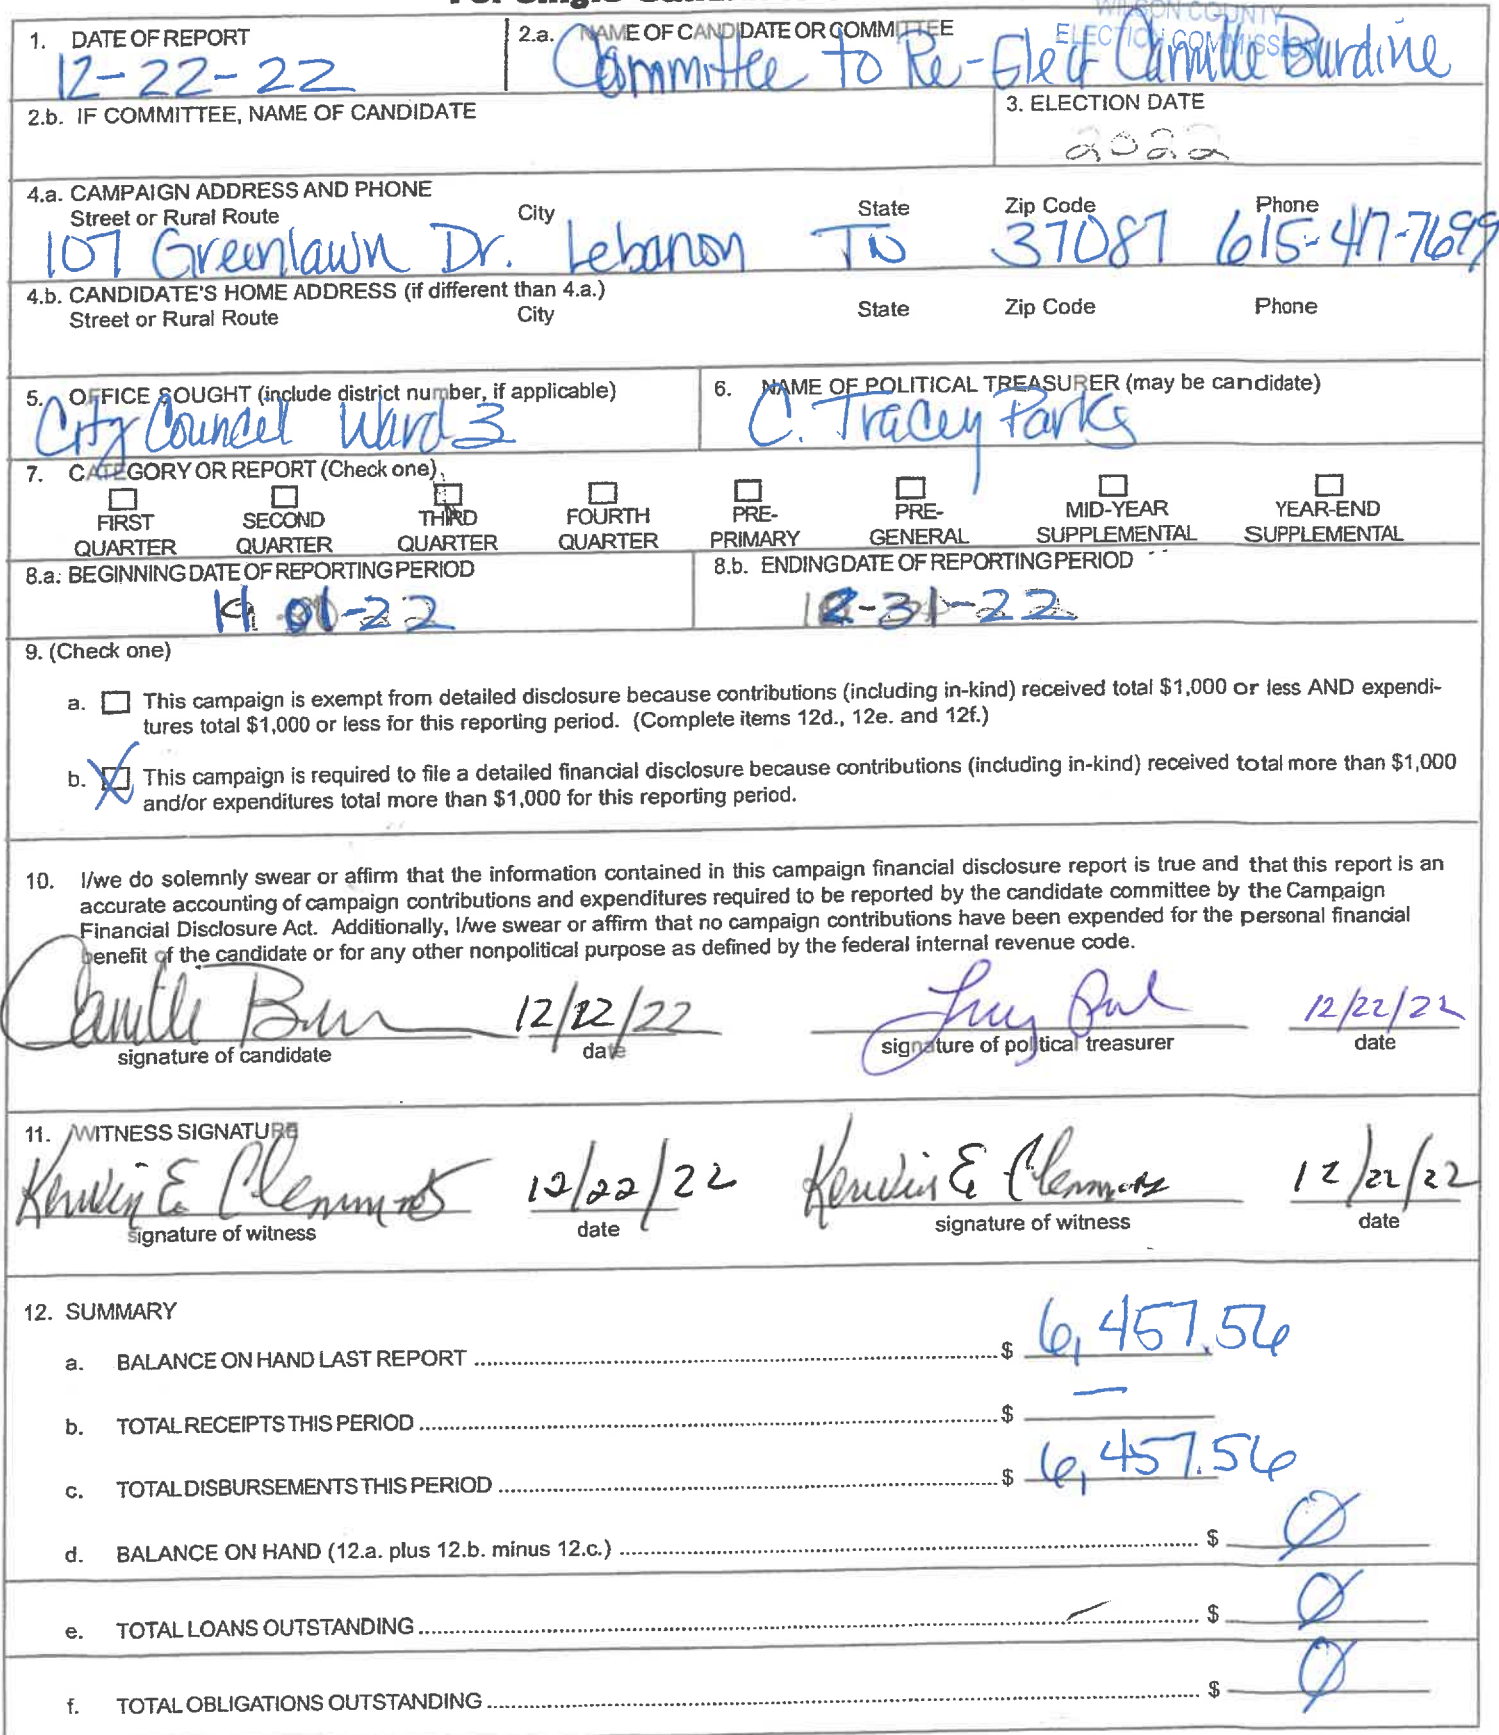 WILSON COUNTY
ELECTION COMMISSION
1. DATE OF REPORT
12-22-22
2.a. NAME OF CANDIDATE OR COMMITTEE
Committee to Re-Elect Camille Burdine
2.b. IF COMMITTEE, NAME OF CANDIDATE
3. ELECTION DATE
2022
4.a. CAMPAIGN ADDRESS AND PHONE
Street or Rural Route City State Zip Code Phone
107 Greenlawn Dr. Lebanon TN 37087 615-417-7699
4.b. CANDIDATE'S HOME ADDRESS (if different than 4.a.)
Street or Rural Route City State Zip Code Phone
5. OFFICE SOUGHT (include district number, if applicable)
City Council Ward 3
6. NAME OF POLITICAL TREASURER (may be candidate)
C. Tracey Parks
7. CATEGORY OR REPORT (Check one)
FIRST QUARTER
SECOND QUARTER
THIRD QUARTER
FOURTH QUARTER
PRE-PRIMARY
PRE-GENERAL
MID-YEAR SUPPLEMENTAL
YEAR-END SUPPLEMENTAL
8.a. BEGINNING DATE OF REPORTING PERIOD
01-22
8.b. ENDING DATE OF REPORTING PERIOD
12-31-22
9. (Check one)
a. This campaign is exempt from detailed disclosure because contributions (including in-kind) received total $1,000 or less AND expendi-
tures total $1,000 or less for this reporting period. (Complete items 12d., 12e. and 12f.)
b. X This campaign is required to file a detailed financial disclosure because contributions (including in-kind) received total more than $1,000
and/or expenditures total more than $1,000 for this reporting period.
10. I/we do solemnly swear or affirm that the information contained in this campaign financial disclosure report is true and that this report is an
accurate accounting of campaign contributions and expenditures required to be reported by the candidate committee by the Campaign
Financial Disclosure Act. Additionally, I/we swear or affirm that no campaign contributions have been expended for the personal financial
benefit of the candidate or for any other nonpolitical purpose as defined by the federal internal revenue code.
Camille 12/22/22 12/22/22
signature of candidate date signature of political treasurer date
11. WITNESS SIGNATURE
Kerwin E Clemmons 12/22/22 Kerwin E Clemmons 12/22/22
signature of witness date signature of witness date
12. SUMMARY
a. BALANCE ON HAND LAST REPORT $ 6,457.56
b. TOTAL RECEIPTS THIS PERIOD $ —
c. TOTAL DISBURSEMENTS THIS PERIOD $ 6,457.56
d. BALANCE ON HAND (12.a. plus 12.b. minus 12.c.) $ Ø
e. TOTAL LOANS OUTSTANDING $ Ø
f. TOTAL OBLIGATIONS OUTSTANDING $ Ø